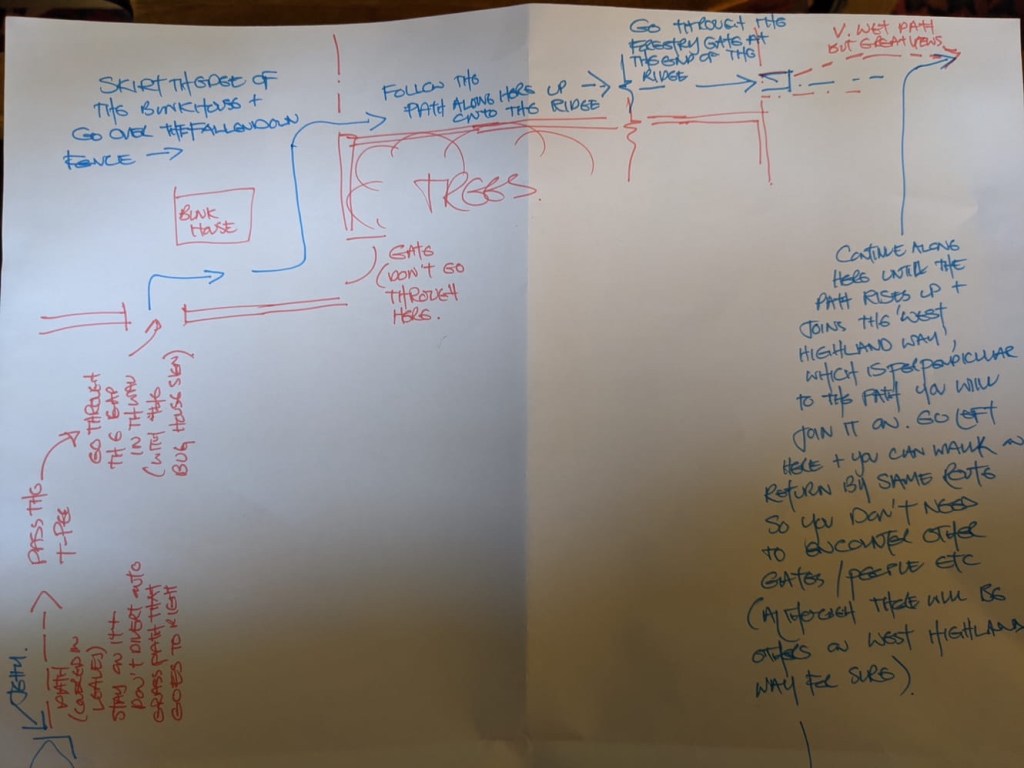 JETTY.
PATH
(COVERED IN
LEAVES)
STAY ON IT +
DON'T DIVERT ONTO
GRASS PATH THAT
GOES TO RIGHT
PASS THE
T-PEE
GO THROUGH
THE GAP
IN THE WALL
(WITH THE
BUG HOUSE SIGN)
SKIRT THE EDGE OF
THE BUNKHOUSE +
GO OVER THE FALLEN DOWN
FENCE →
BUNK
HOUSE
TREES.
GATE
(DON'T GO
THROUGH
HERE.
FOLLOW THE
PATH ALONG HERE UP →
ONTO THE RIDGE
GO THROUGH THE
FORESTRY GATE AT
THE END OF THE
RIDGE
V. WET PATH
BUT GREAT VIEWS
CONTINUE ALONG
HERE UNTIL THE
PATH RISES UP +
JOINS THE 'WEST
HIGHLAND WAY',
WHICH IS PERPENDICULAR
TO THE PATH YOU WILL
JOIN IT ON. GO LEFT
HERE + YOU CAN WALK ON
RETURN BY SAME ROUTE
SO YOU DON'T NEED
TO ENCOUNTER OTHER
GATES / PEOPLE ETC
(ALTHOUGH THERE WILL BE
OTHERS ON WEST HIGHLAND
WAY FOR SURE).